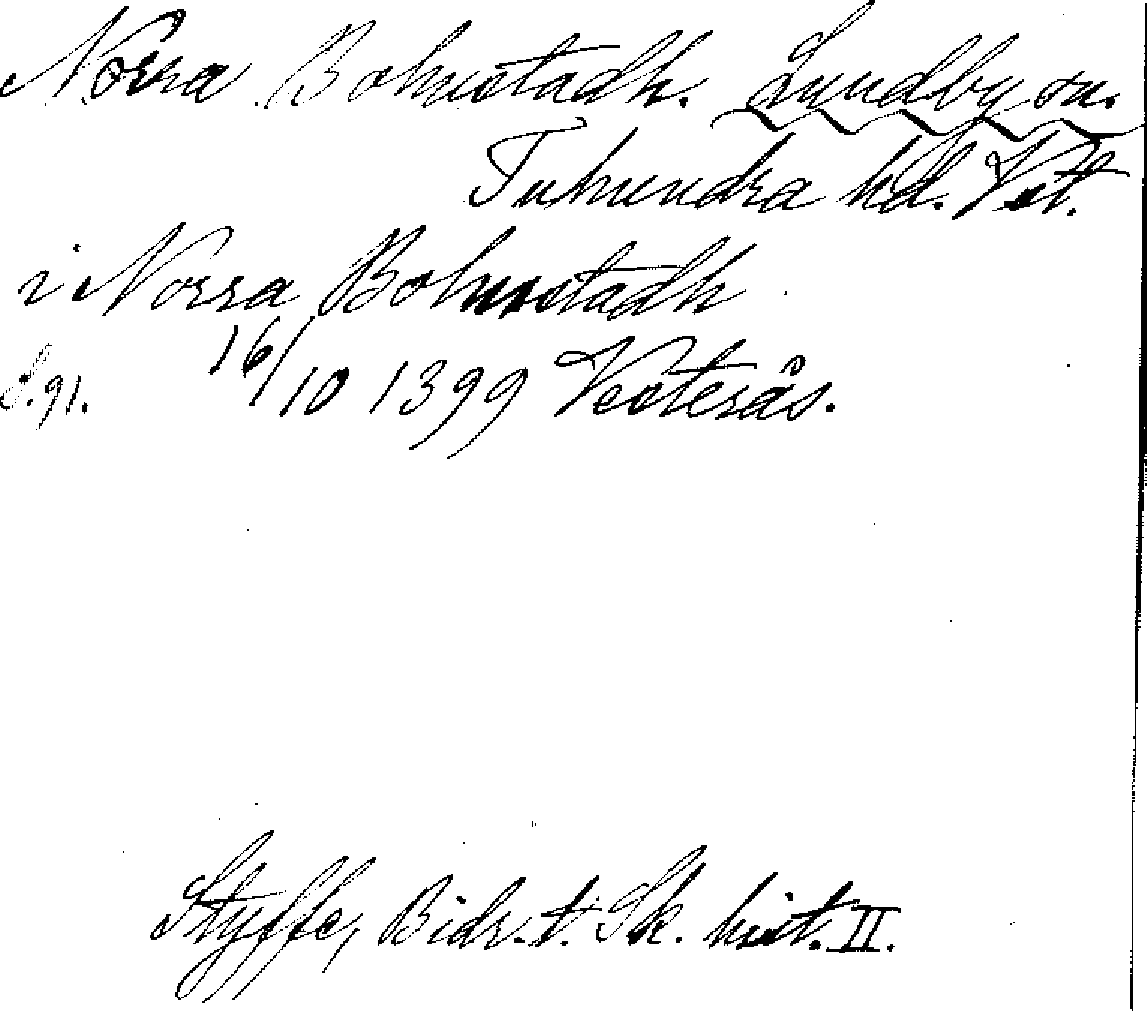 Norra Bolmstadh. Lundby sn.
Tuhundra hd. Vstt.
i Norra Bolmstadh
S. 91. 16/10 1399 Vesterås.
Styffe, Bidr. t. Sk. hist. II.